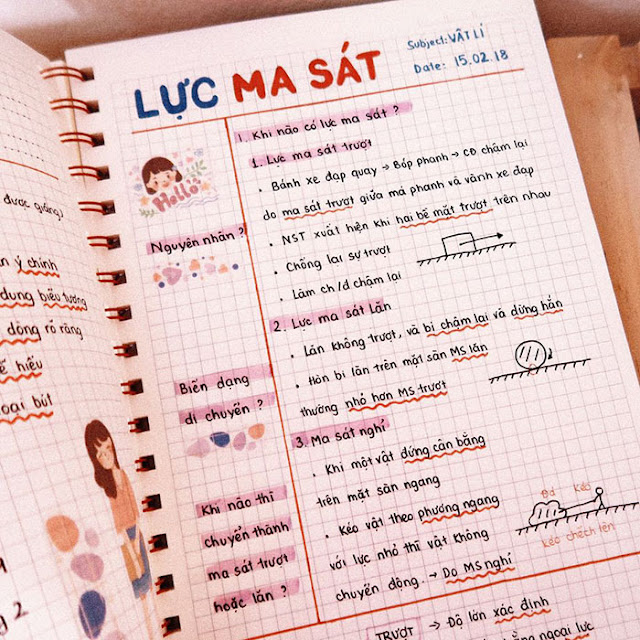 LỰC MA SÁT
Subject: VẬT LÍ
Date: 15.02.18
Hello
Nguyên nhân ?
Biến dạng
di chuyển ?
Khi nào thì
chuyển thành
ma sát trượt
hoặc lăn ?
1. Khi nào có lực ma sát ?
1. Lực ma sát trượt
• Bánh xe đạp quay → Bóp phanh → CĐ chậm lại
do ma sát trượt giữa má phanh và vành xe đạp
• NST xuất hiện khi hai bề mặt trượt trên nhau
• Chống lại sự trượt
• Làm ch/đ chậm lại
2. Lực ma sát lăn
• Lăn không trượt, và bi chậm lại và dừng hẳn
• Hòn bi lăn trên mặt sàn MS lăn
thường nhỏ hơn MS trượt
3. Ma sát nghỉ
• Khi một vật đứng cân bằng
trên mặt sàn ngang
• Kéo vật theo phương ngang
với lực nhỏ thì vật không
chuyển động. → Do MS nghỉ
kéo
kéo chếch lên
TRƯỢT → Độ lớn xác định
bằng ngoại lực
được giống)
n ý chính
dung biểu tượng
dòng rõ ràng
hiểu
oại bút
2